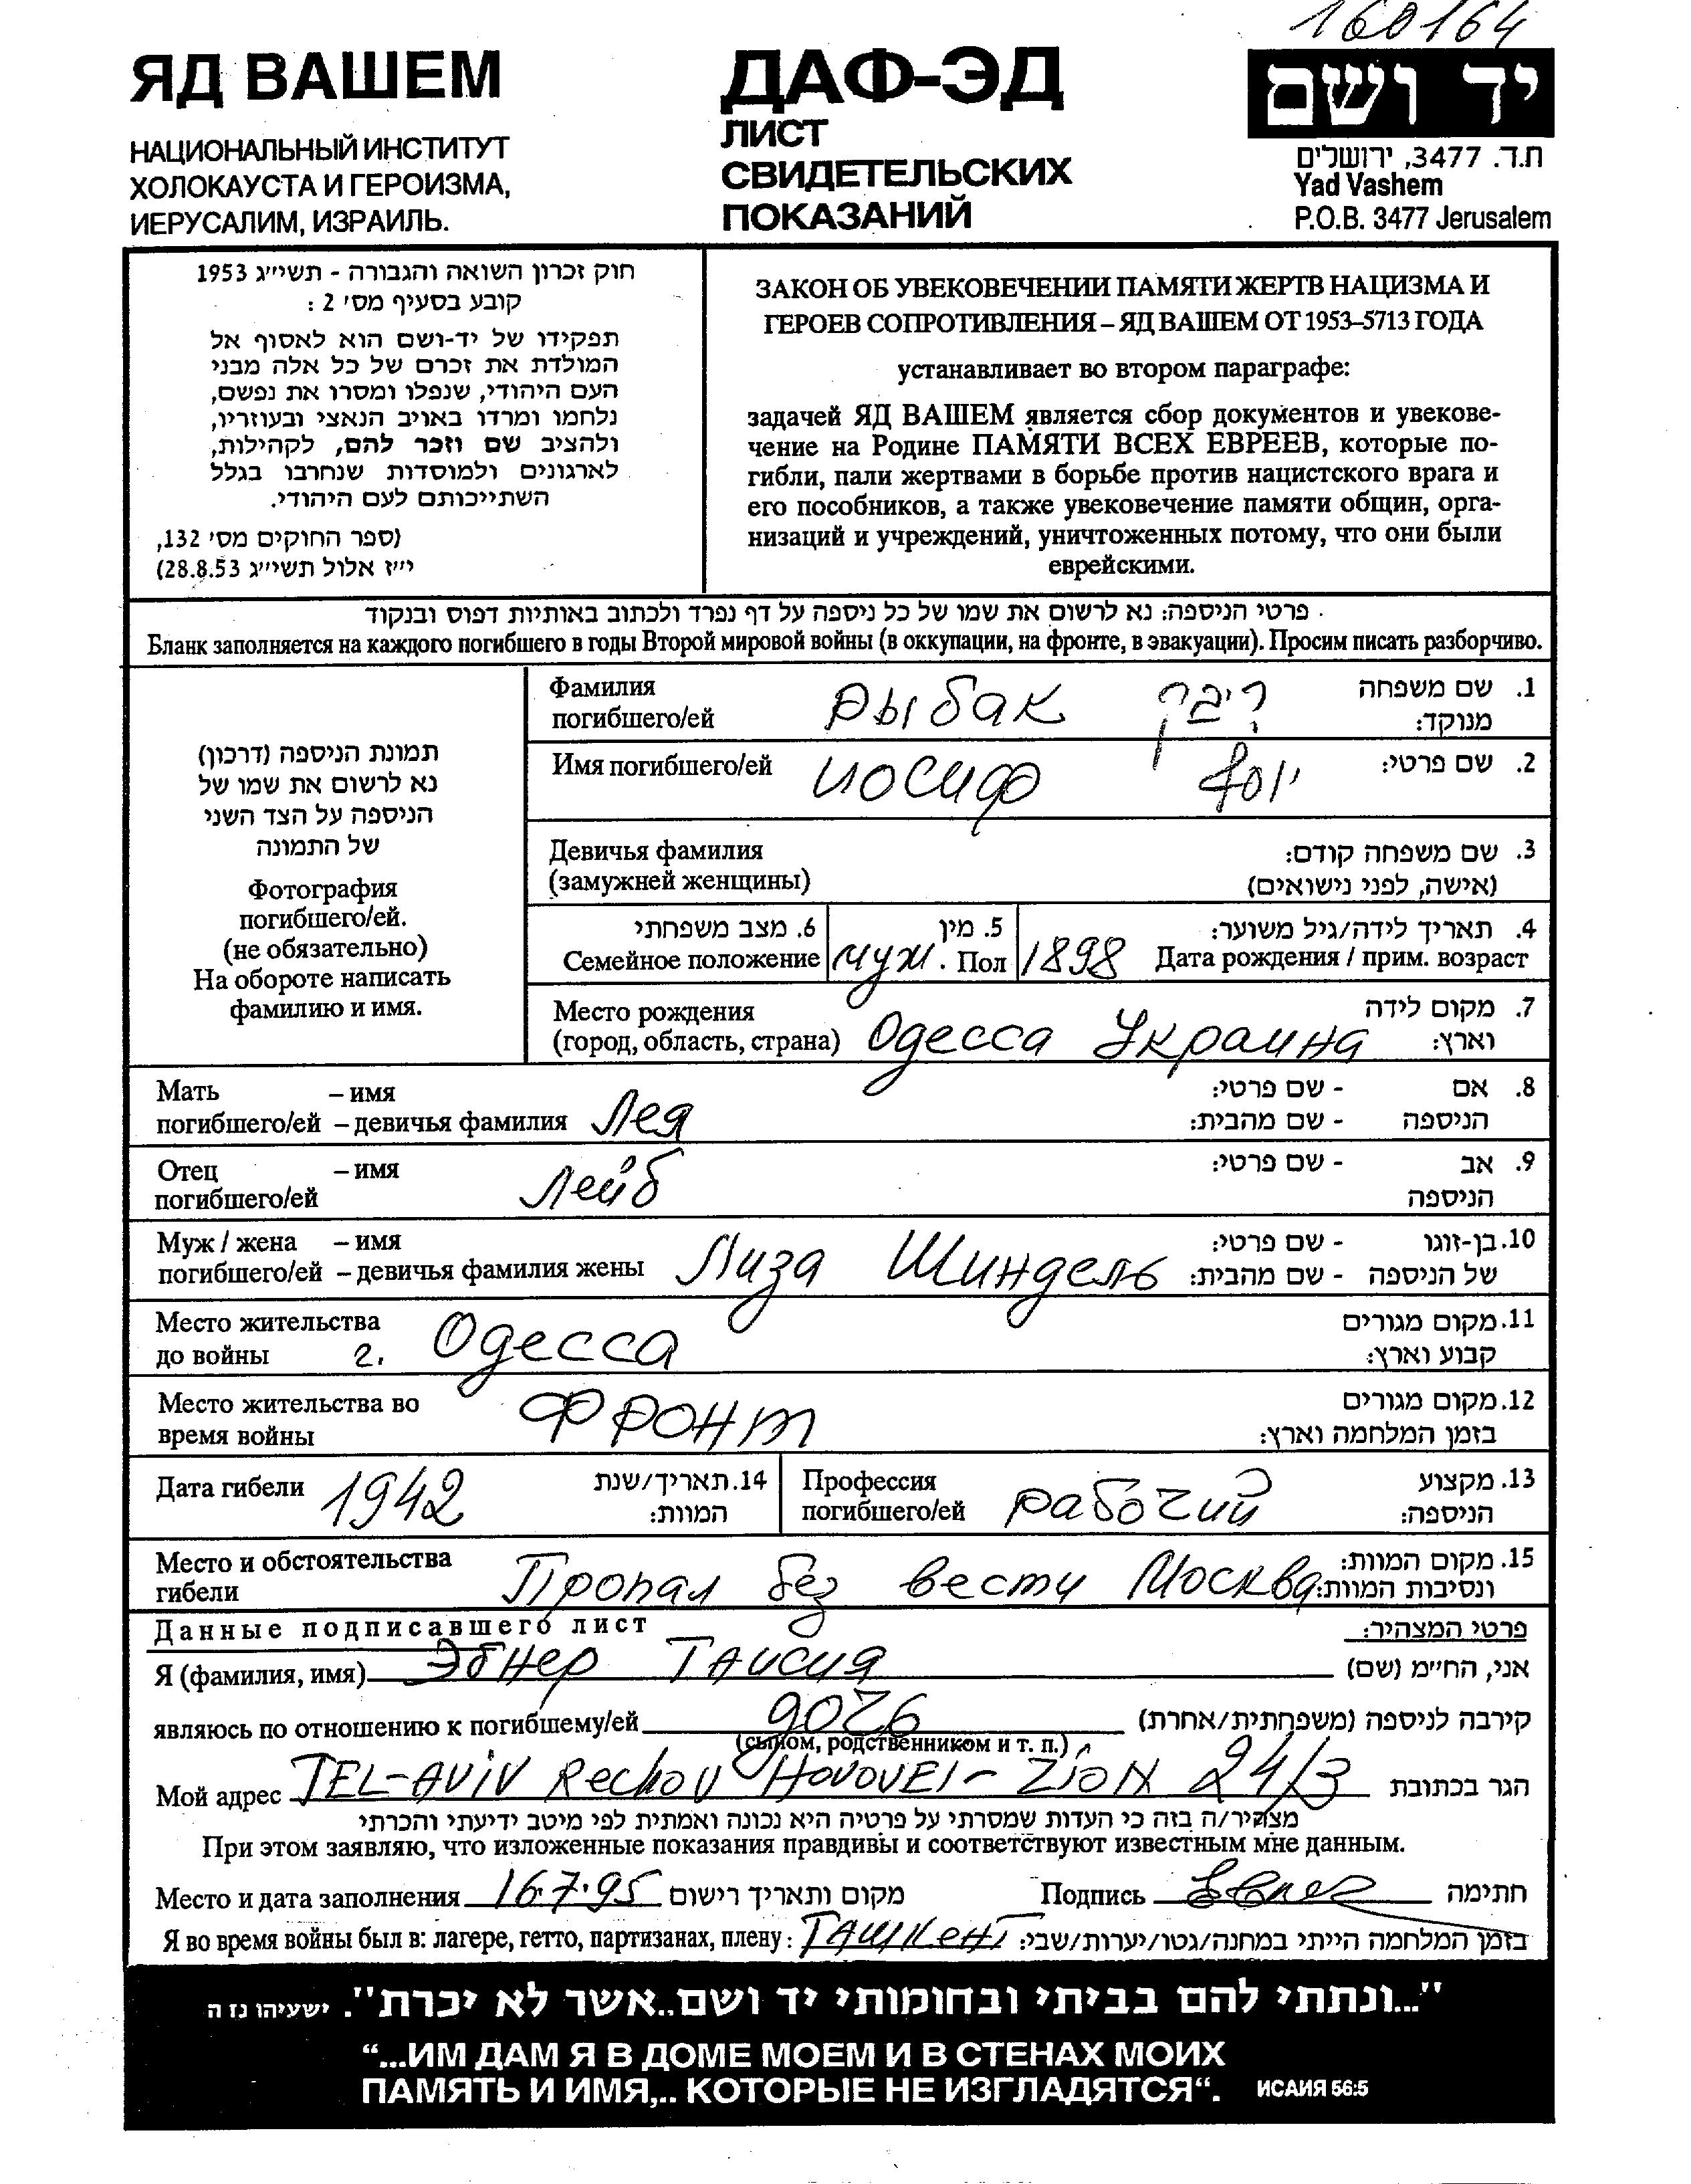 160164
ЯД ВАШЕМ
НАЦИОНАЛЬНЫЙ ИНСТИТУТ
ХОЛОКАУСТА И ГЕРОИЗМА,
ИЕРУСАЛИМ, ИЗРАИЛЬ.
ДАФ-ЭД
ЛИСТ
СВИДЕТЕЛЬСКИХ
ПОКАЗАНИЙ
יד ושם
ת.ד. 3477, ירושלים
Yad Vashem
P.O.B. 3477 Jerusalem
חוק זכרון השואה והגבורה - תשי״ג 1953
קובע בסעיף מס׳ 2 :
תפקידו של יד-ושם הוא לאסוף אל
המולדת את זכרם של כל אלה מבני
העם היהודי, שנפלו ומסרו את נפשם,
נלחמו ומרדו באויב הנאצי ובעוזריו,
ולהציב שם וזכר להם, לקהילות,
לארגונים ולמוסדות שנחרבו בגלל
השתייכותם לעם היהודי.
(ספר החוקים מס׳ 132,
י״ז אלול תשי״ג 28.8.53)
ЗАКОН ОБ УВЕКОВЕЧЕНИИ ПАМЯТИ ЖЕРТВ НАЦИЗМА И
ГЕРОЕВ СОПРОТИВЛЕНИЯ – ЯД ВАШЕМ ОТ 1953–5713 ГОДА
устанавливает во втором параграфе:
задачей ЯД ВАШЕМ является сбор документов и увекове-
чение на Родине ПАМЯТИ ВСЕХ ЕВРЕЕВ, которые по-
гибли, пали жертвами в борьбе против нацистского врага и
его пособников, а также увековечение памяти общин, орга-
низаций и учреждений, уничтоженных потому, что они были
еврейскими.
פרטי הניספה: נא לרשום את שמו של כל ניספה על דף נפרד ולכתוב באותיות דפוס ובנקוד
Бланк заполняется на каждого погибшего в годы Второй мировой войны (в оккупации, на фронте, в эвакуации). Просим писать разборчиво.
תמונת הניספה (דרכון)
נא לרשום את שמו של
הניספה על הצד השני
של התמונה
Фотография
погибшего/ей.
(не обязательно)
На обороте написать
фамилию и имя.
Фамилия рыбак ריבק 1. שם משפחה
погибшего/ей מנוקד:
Имя погибшего/ей иосиф יוסף 2. שם פרטי:
Девичья фамилия 3. שם משפחה קודם:
(замужней женщины) (אישה, לפני נישואים)
6. מצב משפחתי 5. מין 4. תאריך לידה/גיל משוער:
Семейное положение муж. Пол 1898 Дата рождения / прим. возраст
Место рождения 7. מקום לידה
(город, область, страна) Одесса Украина וארץ:
Мать – имя 8. אם - שם פרטי:
погибшего/ей – девичья фамилия Лея הניספה - שם מהבית:
Отец – имя 9. אב - שם פרטי:
погибшего/ей Лейб הניספה
Муж / жена – имя 10. בן-זוגו - שם פרטי:
погибшего/ей – девичья фамилия жены Лиза Шиндель של הניספה - שם מהבית:
Место жительства 11. מקום מגורים
до войны г. Одесса קבוע וארץ:
Место жительства во 12. מקום מגורים
время войны Фронт בזמן המלחמה וארץ:
Дата гибели 1942 14. תאריך/שנת המוות:
Профессия 13. מקצוע
погибшего/ей рабочий הניספה:
Место и обстоятельства 15. מקום המוות:
гибели Пропал без вести Москва ונסיבות המוות:
Данные подписавшего лист פרטי המצהיר:
Я (фамилия, имя) Эбнер Таисия אני, הח״מ (שם)
являюсь по отношению к погибшему/ей дочь קירבה לניספה (משפחתית/אחרת)
(сыном, родственником и т. п.)
Мой адрес TEL-AVIV Rechov HOVOVEI-ZION 24/3 הגר בכתובת
מצהיר/ה בזה כי העדות שמסרתי על פרטיה היא נכונה ואמתית לפי מיטב ידיעתי והכרתי
При этом заявляю, что изложенные показания правдивы и соответствуют известным мне данным.
Место и дата заполнения 16.7.95 מקום ותאריך רישום Подпись חתימה
Я во время войны был в: лагере, гетто, партизанах, плену: ТАШКЕНТ בזמן המלחמה הייתי במחנה/גטו/יערות/שבי:
"...ונתתי להם בביתי ובחומותי יד ושם..אשר לא יכרת". ישעיהו נז ה
“...ИМ ДАМ Я В ДОМЕ МОЕМ И В СТЕНАХ МОИХ
ПАМЯТЬ И ИМЯ,.. КОТОРЫЕ НЕ ИЗГЛАДЯТСЯ“. ИСАИЯ 56:5